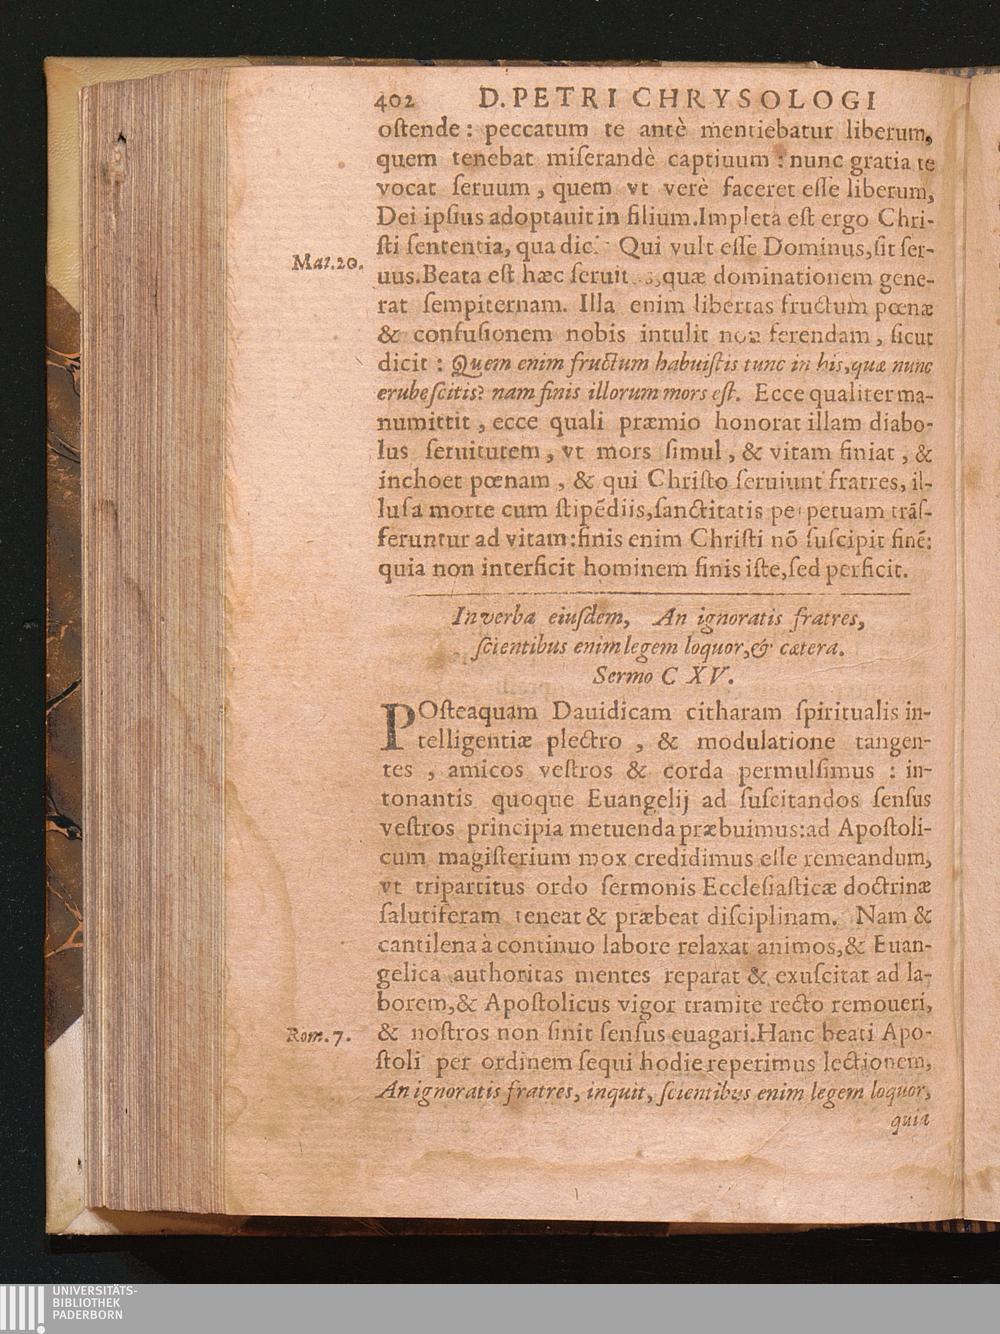 402 D. PETRI CHRYSOLOGI
oſtende : peccatum te antè mentiebatur liberum,
quem tenebat miſerandè captiuum : nunc gratia te
vocat ſeruum , quem vt verè faceret eſſe liberum,
Dei ipſius adoptauit in filium. Impleta eſt ergo Chri-
ſti ſententia, qua Qui vult eſſe Dominus, ſit ſer-
Mat. 20.
uus. Beata eſt hæc quæ dominationem gene-
rat ſempiternam. Illa enim libertas fructum pœnæ
& confuſionem nobis intulit non ferendam , ſicut
dicit : Quem enim fructum habuiſtis tunc in his, quæ nunc
erubeſcitis? nam finis illorum mors eſt. Ecce qualiter ma-
numittit , ecce quali præmio honorat illam diabo-
lus ſeruitutem , vt mors ſimul , & vitam finiat , &
inchoet pœnam , & qui Chriſto ſeruiunt fratres, il-
luſa morte cum ſtipēdiis, ſanctitatis perpetuam trāſ-
feruntur ad vitam: finis enim Chriſti nō ſuſcipit finē:
quia non interficit hominem finis iſte, ſed perficit.
In verba eiuſdem, An ignoratis fratres,
ſcientibus enim legem loquor, & cætera.
Sermo C XV.
POſteaquam Dauidicam citharam ſpiritualis in-
telligentiæ plectro , & modulatione tangen-
tes , amicos veſtros & corda permulſimus : in-
tonantis quoque Euangelij ad ſuſcitandos ſenſus
veſtros principia metuenda præbuimus: ad Apoſtoli-
cum magiſterium mox credidimus eſſe remeandum,
vt tripartitus ordo ſermonis Eccleſiaſticæ doctrinæ
ſalutiferam teneat & præbeat diſciplinam. Nam &
cantilena à continuo labore relaxat animos, & Euan-
gelica authoritas mentes reparat & exuſcitat ad la-
borem, & Apoſtolicus vigor tramite recto remoueri,
Rom. 7.
& noſtros non ſinit ſenſus euagari. Hanc beati Apo-
ſtoli per ordinem ſequi hodie reperimus lectionem,
An ignoratis fratres, inquit, ſcientibus enim legem loquor,
quia
UNIVERSITÄTS-
BIBLIOTHEK
PADERBORN